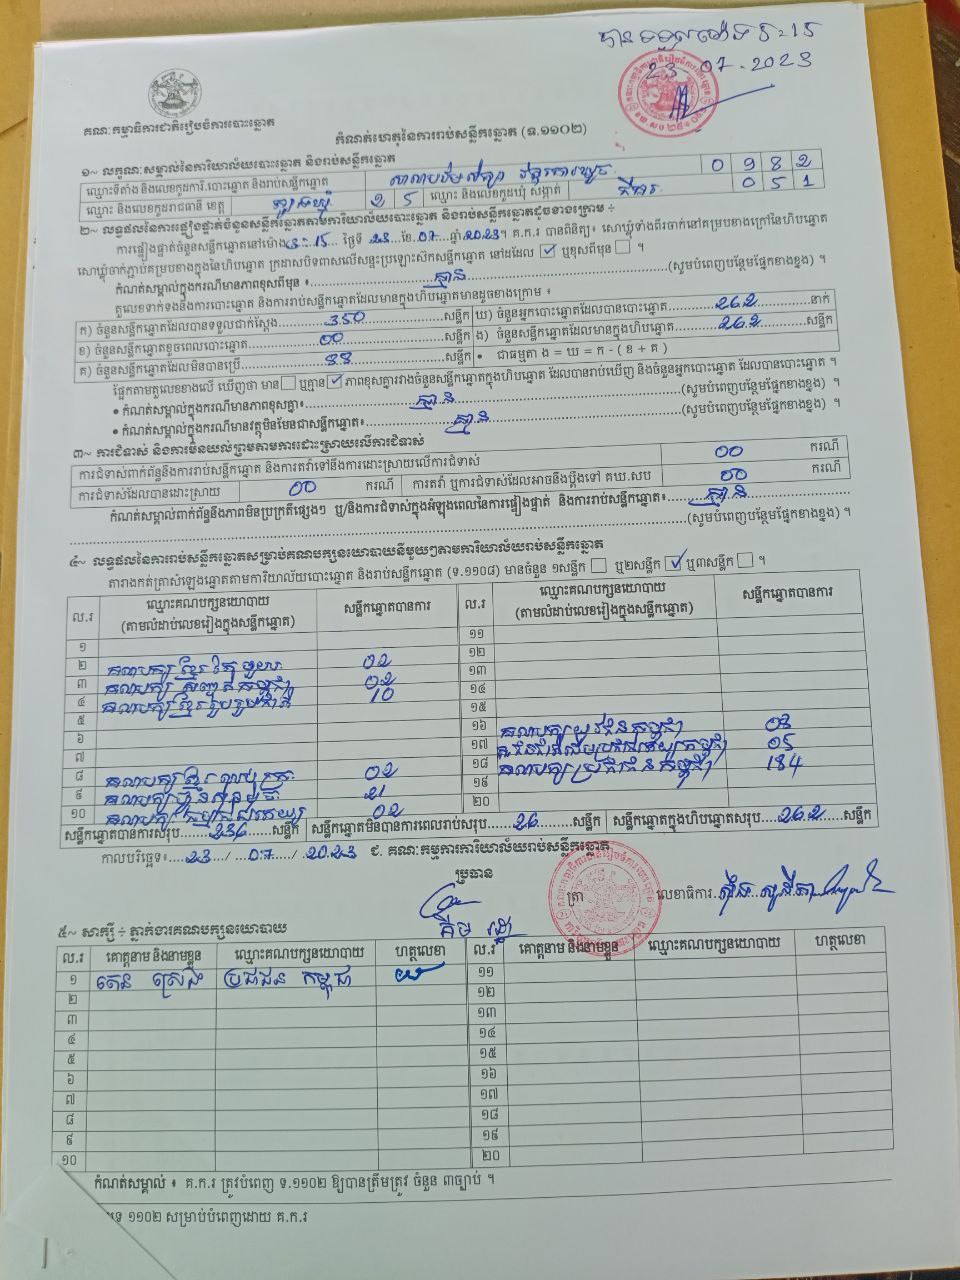 បានទទួលម៉ោង 5:15
23 07 - 2023
គណៈកម្មាធិការជាតិរៀបចំការបោះឆ្នោត
កំណត់ហេតុនៃការរាប់សន្លឹកឆ្នោត (ទ.១១០២)
១~ លក្ខណៈសម្គាល់នៃការិយាល័យបោះឆ្នោត និងរាប់សន្លឹកឆ្នោត
ឈ្មោះទីតាំង និងលេខកូដការិ.បោះឆ្នោត និងរាប់សន្លឹកឆ្នោត 0 9 8 2
ឈ្មោះ និងលេខកូដរាជធានី ខេត្ត ត្បូងឃ្មុំ 2 5 ឈ្មោះ និងលេខកូដឃុំ សង្កាត់ 0 5 1
២~ លទ្ធផលនៃការផ្ទៀងផ្ទាត់ចំនួនសន្លឹកឆ្នោតតាមការិយាល័យបោះឆ្នោត និងរាប់សន្លឹកឆ្នោតដូចខាងក្រោម ÷
ការផ្ទៀងផ្ទាត់ចំនួនសន្លឹកឆ្នោតនៅម៉ោង 3:15 ថ្ងៃទី 23 ខែ 07 ឆ្នាំ 2023 ។ គ.ក.រ បានពិនិត្យ៖ សោឃ្លុំទាំងពីរចាក់នៅគម្របខាងក្រៅនៃហិបឆ្នោត
សោឃ្លុំចាក់ភ្ជាប់គម្របខាងក្នុងនៃហិបឆ្នោត ក្រដាសបិទពាសលើសន្ទះប្រឡោះស៊កសន្លឹកឆ្នោត នៅដដែល ☑ ឬខុសពីមុន ☐ ។
កំណត់សម្គាល់ក្នុងករណីមានភាពខុសពីមុន ៖ គ្មាន (សូមបំពេញបន្ថែមផ្នែកខាងខ្នង) ។
តួលេខទាក់ទងនឹងការបោះឆ្នោត និងការរាប់សន្លឹកឆ្នោតដែលមានក្នុងហិបឆ្នោតមានដូចខាងក្រោម ៖
ក) ចំនួនសន្លឹកឆ្នោតដែលបានទទួលជាក់ស្តែង 350 សន្លឹក ឃ) ចំនួនអ្នកបោះឆ្នោតដែលបានបោះឆ្នោត 262 នាក់
ខ) ចំនួនសន្លឹកឆ្នោតខូចពេលបោះឆ្នោត 00 សន្លឹក ង) ចំនួនសន្លឹកឆ្នោតដែលមានក្នុងហិបឆ្នោត 262 សន្លឹក
គ) ចំនួនសន្លឹកឆ្នោតដែលមិនបានប្រើ 88 សន្លឹក • ជាធម្មតា ង = ឃ = ក - ( ខ + គ )
ផ្អែកតាមតួលេខខាងលើ ឃើញថា មាន ☐ ឬគ្មាន ☑ ភាពខុសគ្នារវាងចំនួនសន្លឹកឆ្នោតក្នុងហិបឆ្នោត ដែលបានរាប់ឃើញ និងចំនួនអ្នកបោះឆ្នោត ដែលបានបោះឆ្នោត ។
• កំណត់សម្គាល់ក្នុងករណីមានភាពខុសគ្នា៖ គ្មាន (សូមបំពេញបន្ថែមផ្នែកខាងខ្នង) ។
• កំណត់សម្គាល់ក្នុងករណីមានវត្ថុមិនមែនជាសន្លឹកឆ្នោត៖ គ្មាន (សូមបំពេញបន្ថែមផ្នែកខាងខ្នង) ។
៣~ ការជំទាស់ និងការមិនយល់ព្រមតាមការដោះស្រាយលើការជំទាស់
ការជំទាស់ពាក់ព័ន្ធនឹងការរាប់សន្លឹកឆ្នោត និងការតវ៉ាទៅនឹងការដោះស្រាយលើការជំទាស់ 00 ករណី
ការជំទាស់ដែលបានដោះស្រាយ 00 ករណី ការតវ៉ា ឬការជំទាស់ដែលអាចនឹងប្តឹងទៅ គឃ.សប 00 ករណី
កំណត់សម្គាល់ពាក់ព័ន្ធនឹងភាពមិនប្រក្រតីផ្សេងៗ ឬ/និងការជំទាស់ក្នុងអំឡុងពេលនៃការផ្ទៀងផ្ទាត់ និងការរាប់សន្លឹកឆ្នោត៖ គ្មាន
(សូមបំពេញបន្ថែមផ្នែកខាងខ្នង) ។
៤~ លទ្ធផលនៃការរាប់សន្លឹកឆ្នោតសម្រាប់គណបក្សនយោបាយនីមួយៗតាមការិយាល័យរាប់សន្លឹកឆ្នោត
តារាងកត់ត្រាសំឡេងឆ្នោតតាមការិយាល័យបោះឆ្នោត និងរាប់សន្លឹកឆ្នោត (ទ.១១០៨) មានចំនួន ១សន្លឹក ☐ ឬ២សន្លឹក ☑ ឬ៣សន្លឹក ☐ ។
ល.រ ឈ្មោះគណបក្សនយោបាយ (តាមលំដាប់លេខរៀងក្នុងសន្លឹកឆ្នោត) សន្លឹកឆ្នោតបានការ ល.រ ឈ្មោះគណបក្សនយោបាយ (តាមលំដាប់លេខរៀងក្នុងសន្លឹកឆ្នោត) សន្លឹកឆ្នោតបានការ
១ ១១
២ គណបក្ស ខ្មែរ តែ មួយ 02 ១២
៣ គណបក្ស 02 ១៣
៤ គណបក្ស ខ្មែរ រួបរួមជាតិ 10 ១៤
៥ ១៥
៦ ១៦ គណបក្សយុវជនកម្ពុជា 03
៧ ១៧ 05
៨ គណបក្ស 02 ១៨ គណបក្សប្រជាជនកម្ពុជា 184
៩ គណបក្សហ្វ៊ុនស៊ិនប៉ិច 21 ១៩
១០ គណបក្ស 02 ២០
សន្លឹកឆ្នោតបានការសរុប 236 សន្លឹក សន្លឹកឆ្នោតមិនបានការពេលរាប់សរុប 26 សន្លឹក សន្លឹកឆ្នោតក្នុងហិបឆ្នោតសរុប 262 សន្លឹក
កាលបរិច្ឆេទ៖ 23 / 07 / 2023 ជ. គណៈកម្មការការិយាល័យរាប់សន្លឹកឆ្នោត
ប្រធាន ត្រា លេខាធិការ
គីម រដ្ឋា
៥~ សាក្សី ÷ ភ្នាក់ងារគណបក្សនយោបាយ
ល.រ គោត្តនាម និងនាមខ្លួន ឈ្មោះគណបក្សនយោបាយ ហត្ថលេខា ល.រ គោត្តនាម និងនាមខ្លួន ឈ្មោះគណបក្សនយោបាយ ហត្ថលេខា
១ តេន ស្រេង ប្រជាជន កម្ពុជា ១១
២ ១២
៣ ១៣
៤ ១៤
៥ ១៥
៦ ១៦
៧ ១៧
៨ ១៨
៩ ១៩
១០ ២០
កំណត់សម្គាល់ ៖ គ.ក.រ ត្រូវបំពេញ ទ.១១០២ ឱ្យបានត្រឹមត្រូវ ចំនួន ៣ច្បាប់ ។
១១០២ សម្រាប់បំពេញដោយ គ.ក.រ